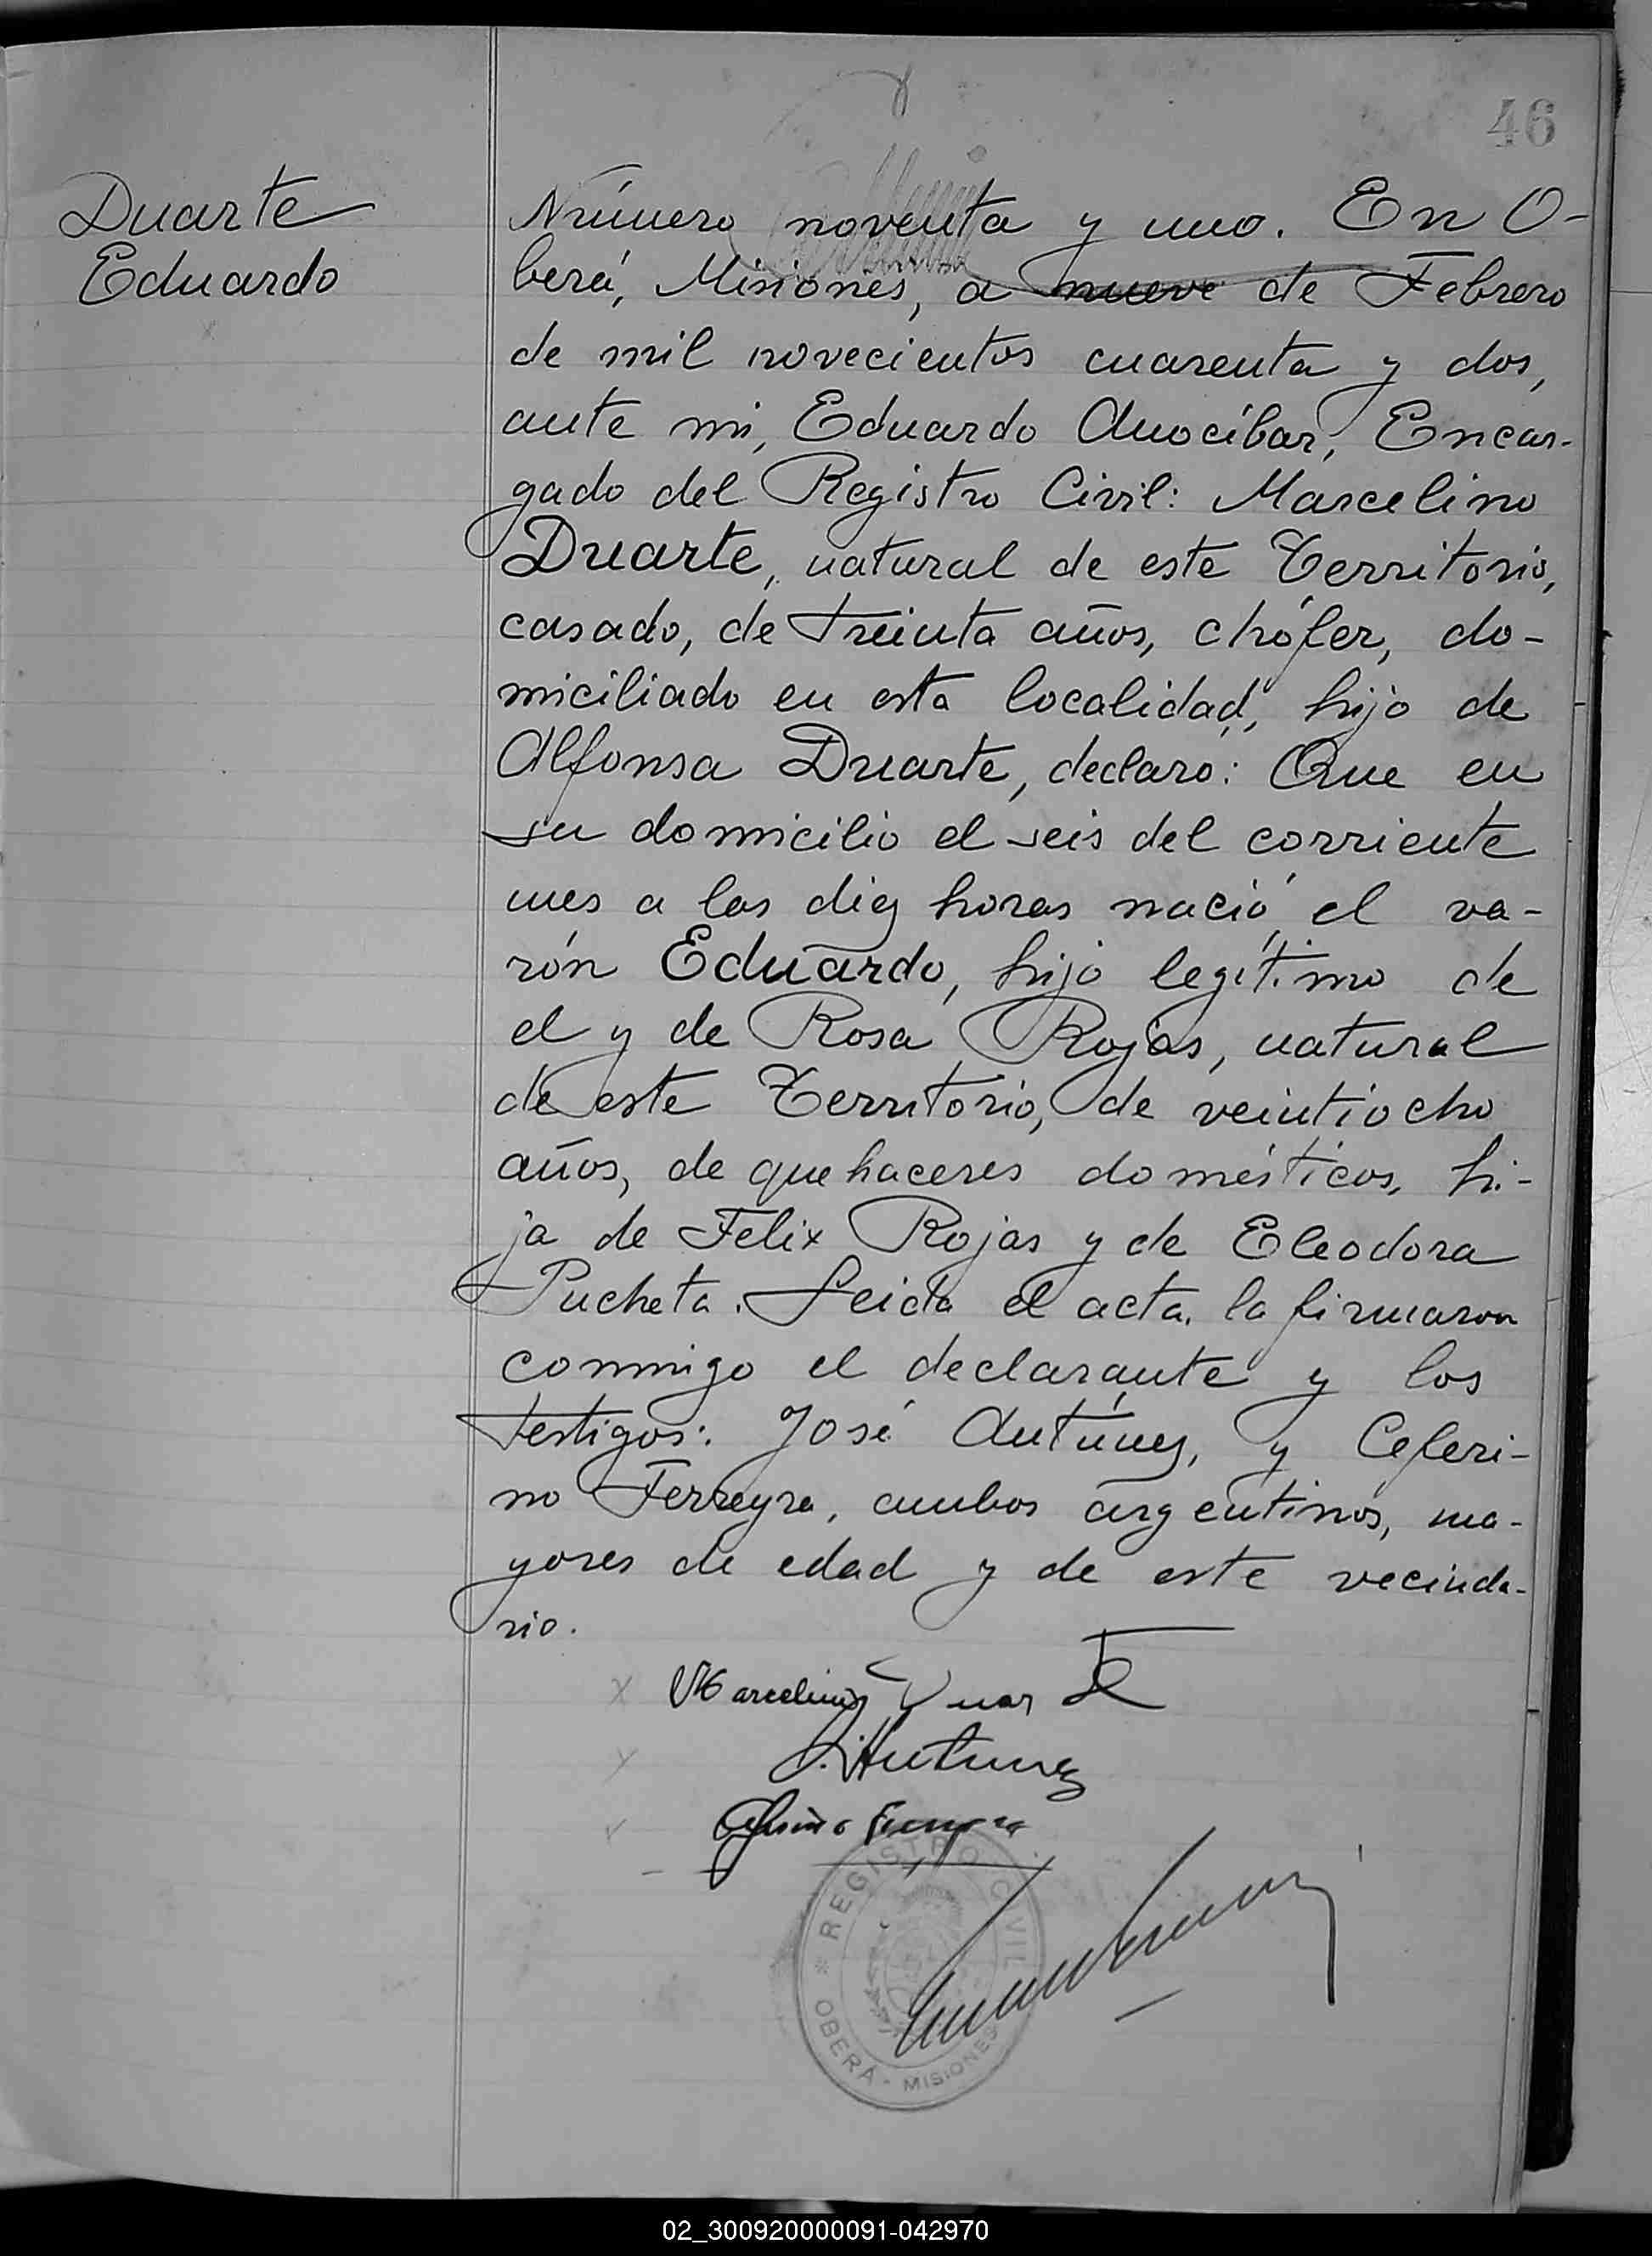 46
Duarte
Eduardo
Número noventa y uno. En O-
berá, Misiones, a nueve de Febrero
de mil novecientos cuarenta y dos,
ante mi, Eduardo Anocíbar, Encar-
gado del Registro Civil: Marcelino
Duarte, natural de este Territorio,
casado, de treinta años, chófer, do-
miciliado en esta localidad, hijo de
Alfonsa Duarte, declaró: Que en
su domicilio el seis del corriente
mes a las diez horas nació el va-
rón Eduardo, hijo legítimo de
el y de Rosa Rojas, natural
de este Territorio, de veintiocho
años, de quehaceres domésticos, hi-
ja de Felix Rojas y de Eleodora
Pucheta. Leida el acta, la firmaron
conmigo el declarante y los
testigos: José Antúnez, y Ceferi-
no Ferreyra, ambos argentinos, ma-
yores de edad y de este vecinda-
rio.
Marcelino Duarte
J. Antunez
Ceferino Ferreyra
REGISTRO CIVIL
OBERÁ - MISIONES
02_300920000091-042970